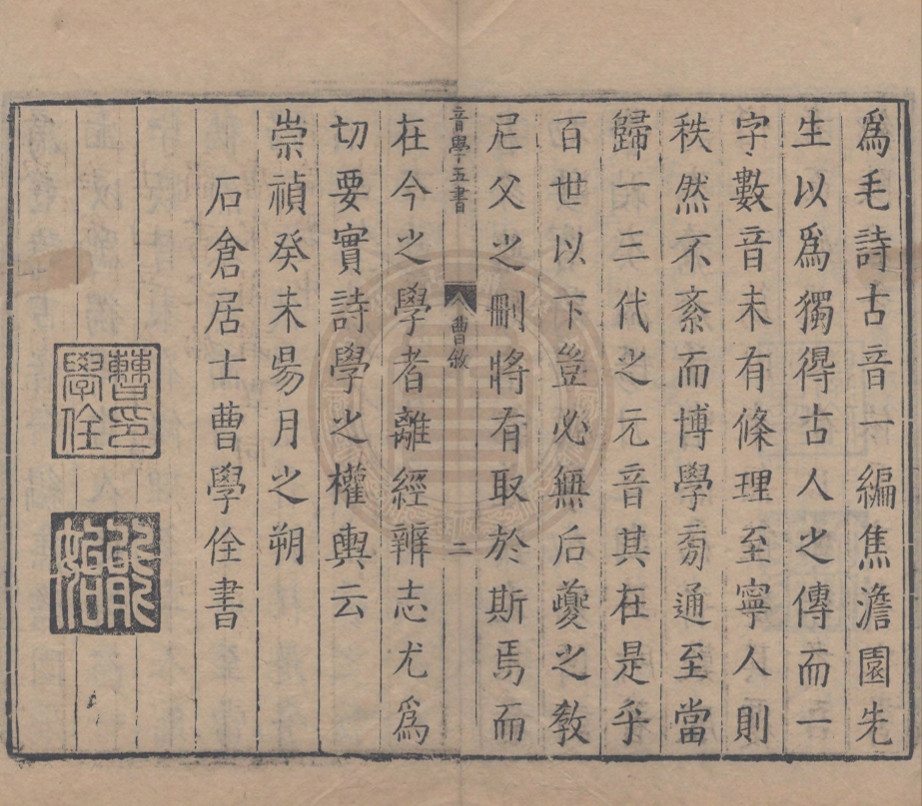 爲毛詩古音一編焦澹園先
生以爲獨得古人之傳而一
字數音未有條理至寧人則
秩然不紊而博學旁通至當
歸一三代之元音其在是乎
百世以下豈必無后夔之敎
尼父之刪將有取於斯焉而
音學五書
曹敘
二
在今之學者離經辨志尤爲
切要實詩學之權輿云
崇禎癸未昜月之朔
石倉居士曹學佺書
曹學佺印